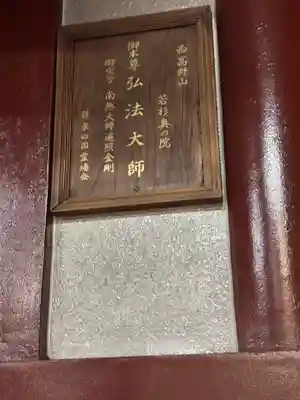 西高野山
若杉奥の院
御本尊 弘法大師
御宝号 南無大師遍照金剛
篠栗四国霊場会